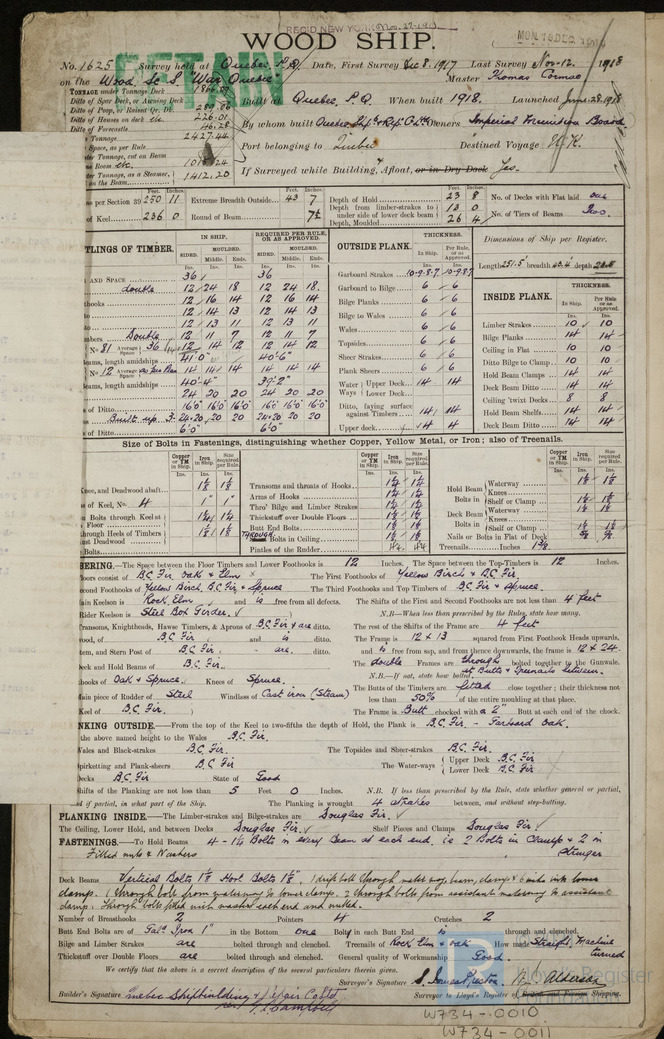 REC'D NEW YORK Nov. 27-1918
MON. 16 DEC. 1918
WOOD SHIP.
RETAIN
No. 1625 Survey held at Quebec, P.Q. Date, First Survey Dec 8. 1917 Last Survey Nov. 12. 1918
on the Wood Sc S. "War Quebec" Master Thomas Cormac
TONNAGE under Tonnage Deck
Ditto of Spar Deck, or Awning Deck
Ditto of Poop, or Raised Qr. Dk.
Ditto of Houses on deck 226.01
Ditto of Forecastle 46.28
2427.44
Built at Quebec, P.Q. When built 1918. Launched June 28. 1918
By whom built Quebec Owners Imperial Munitions Board
Space, as per Rule
Port belonging to Quebec Destined Voyage U.K.
Tonnage, as a Steamer, 1412.20
on the Beam.
If Surveyed while Building, Afloat, or in Dry Dock Yes.
Feet. Inches.
as per Section 39 250 11 Extreme Breadth Outside 43 7
of Keel 236 0 Round of Beam 7½
Depth of Hold 23 8
Depth from limber-strakes to under side of lower deck beam 13 0
Depth, Moulded 26 4
No. of Decks with Flat laid one
No. of Tiers of Beams Two.
TLINGS OF TIMBER.
IN SHIP. REQUIRED PER RULE, OR AS APPROVED.
SIDED. MOULDED. SIDED. MOULDED.
Middle. Ends. Middle. Ends.
AND SPACE 36 36
double 12 24 18 12 24 18.
hooks 12 16 14 12 16 14
12 14 13 12 14 13
12 13 11 12 13 11
Double 12 11 7 12 11 7
No. 81 Average Space 36 12 14 12 12 14 12
beams, length amidships 41'0" 40'-6"
No. 12 14 14 14 14 14 14
beams, length amidships 40'-4" 39'-2"
24 20 20 24 20 20
of Ditto 16'0 16'0 16'0 16'0 16'0 16'0
Built up 3- 24·20 20 20 24·20 20 20
of Ditto 6'0" 6'0"
OUTSIDE PLANK.
THICKNESS.
In Ship. Per Rule, or as Approved.
Garboard Strakes 10·9·8·7 10·9·8·7
Garboard to Bilge 6 6
Bilge Planks 6 6
Bilge to Wales 6 6
Wales 6 6
Topsides 6 6
Sheer Strakes 6 6
Plank Sheers 6 6
Water Ways Upper Deck 14 14
Lower Deck
Ditto, faying surface against Timbers 14 14
Upper deck 4 4
Dimensions of Ship per Register.
Length 251.5' breadth 43.4' depth
INSIDE PLANK.
THICKNESS.
In Ship. Per Rule or as Approved.
Limber Strakes 10 10
Bilge Planks 14 14
Ceiling in Flat 10 10
Ditto Bilge to Clamp 10 10
Hold Beam Clamps 14 14
Deck Beam Ditto 14 14
Ceiling 'twixt Decks 8 8
Hold Beam Shelfs 14 14
Deck Beam Ditto 14 14
Size of Bolts in Fastenings, distinguishing whether Copper, Yellow Metal, or Iron; also of Treenails.
Copper or YM in Ship. Iron in Ship. Size required per Rule.
Knee, and Deadwood abaft 1⅛ 1⅛
s of Keel, No. 4 1" 1"
Bolts through Keel at Floor 1¼ 1¼
through Heels of Timbers against Deadwood 1⅛ 1⅛
Bolts
Transoms and throats of Hooks 1¼ 1¼
Arms of Hooks 1¼ 1¼
Thro' Bilge and Limber Strakes
Thickstuff over Double Floors
Butt End Bolts
THROUGH Bolts in Ceiling
Pintles of the Rudder
Hold Beam Bolts in Waterway 1⅛ 1⅛
Knees
Shelf or Clamp 1⅛ 1⅛
Deck Beam Bolts in Waterway
Knees
Shelf or Clamp 1⅛ 1⅛
Nails or Bolts in Flat of Deck
Treenails Inches 1⅜
BERING.—The Space between the Floor Timbers and Lower Foothooks is 12 Inches. The Space between the Top-Timbers is 12 Inches.
loors consist of B.C. Fir, Oak & Elm The First Foothooks of Yellow Birch & B.C. Fir.
econd Foothooks of Yellow Birch, B.C. Fir & Spruce The Third Foothooks and Top Timbers of B.C. Fir & Spruce.
ain Keelson is Rock Elm and is free from all defects. The Shifts of the First and Second Foothooks are not less than 4 feet
Rider Keelson is Steel Box Girder. N.B.—When less than prescribed by the Rules, state how many.
ransoms, Knightheads, Hawse Timbers, & Aprons of B.C. Fir & are ditto. The rest of the Shifts of the Frame are 4 feet
wood, of B.C. Fir and is ditto. The Frame is 12 x 13 squared from First Foothook Heads upwards,
tem, and Stern Post of B.C. Fir - are. ditto. and is free from sap, and from thence downwards, the frame is 12 x 24.
eck and Hold Beams of B.C. Fir. The double Frames are through bolted together to the Gunwale. at Butts & Treenails between.
hooks of Oak & Spruce. Knees of Spruce. N.B.—If not, state how bolted.
ain piece of Rudder of Steel Windlass of Cast iron (Steam) The Butts of the Timbers are fitted close together; their thickness not less than 50% of the entire moulding at that place.
Keel of B.C. Fir. The Frame is Butt chocked with a 2" Butt at each end of the chock.
NKING OUTSIDE.—From the top of the Keel to two-fifths the depth of Hold, the Plank is B.C. Fir - Garboard Oak.
the above named height to the Wales B.C. Fir.
Wales and Black-strakes B.C. Fir. The Topsides and Sheer-strakes B.C. Fir.
Spirketting and Plank-sheers B.C. Fir The Water-ways Upper Deck B.C. Fir
Lower Deck B.C. Fir
Decks B.C. Fir State of Good
Shifts of the Planking are not less than 5 Feet 0 Inches. N.B. If less than prescribed by the Rule, state whether general or partial,
nd if partial, in what part of the Ship. The Planking is wrought 4 strakes between, and without step-butting.
PLANKING INSIDE.—The Limber-strakes and Bilge-strakes are Douglas Fir.
The Ceiling, Lower Hold, and between Decks Douglas Fir. Shelf Pieces and Clamps Douglas Fir.
FASTENINGS.—To Hold Beams 4 - 1¼ Bolts in every Beam at each end, ie 2 Bolts in Clamp & 2 in Stringer
Fitted nuts & Washers
Deck Beams Vertical Bolts 1⅛ Horl Bolts 1⅛". 1 drift bolt through water way, beam, clamp & 6 inches into lower
clamp. 1 through bolt from waterway to lower clamp. 2 through bolts from assistant waterway to assistant
clamp. Through bolts fitted with washers each end and nutted.
Number of Breasthooks 2 Pointers 4 Crutches 2
Butt End Bolts are of Galv Iron 1" in the Bottom one Bolt in each Butt End is through and clenched.
Bilge and Limber Strakes are bolted through and clenched. Treenails of Rock Elm & oak How made Straight, Machine turned
Thickstuff over Double Floors are bolted through and clenched. General quality of Workmanship Good.
We certify that the above is a correct description of the several particulars therein given.
Surveyor's Signature
Builder's Signature Quebec Shipbuilding & Repair Co Ltd Surveyor to Lloyd's Register of British and Foreign Shipping.
Lloyd's Register
W734-0010
W734-0011